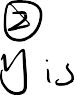 ②
y is